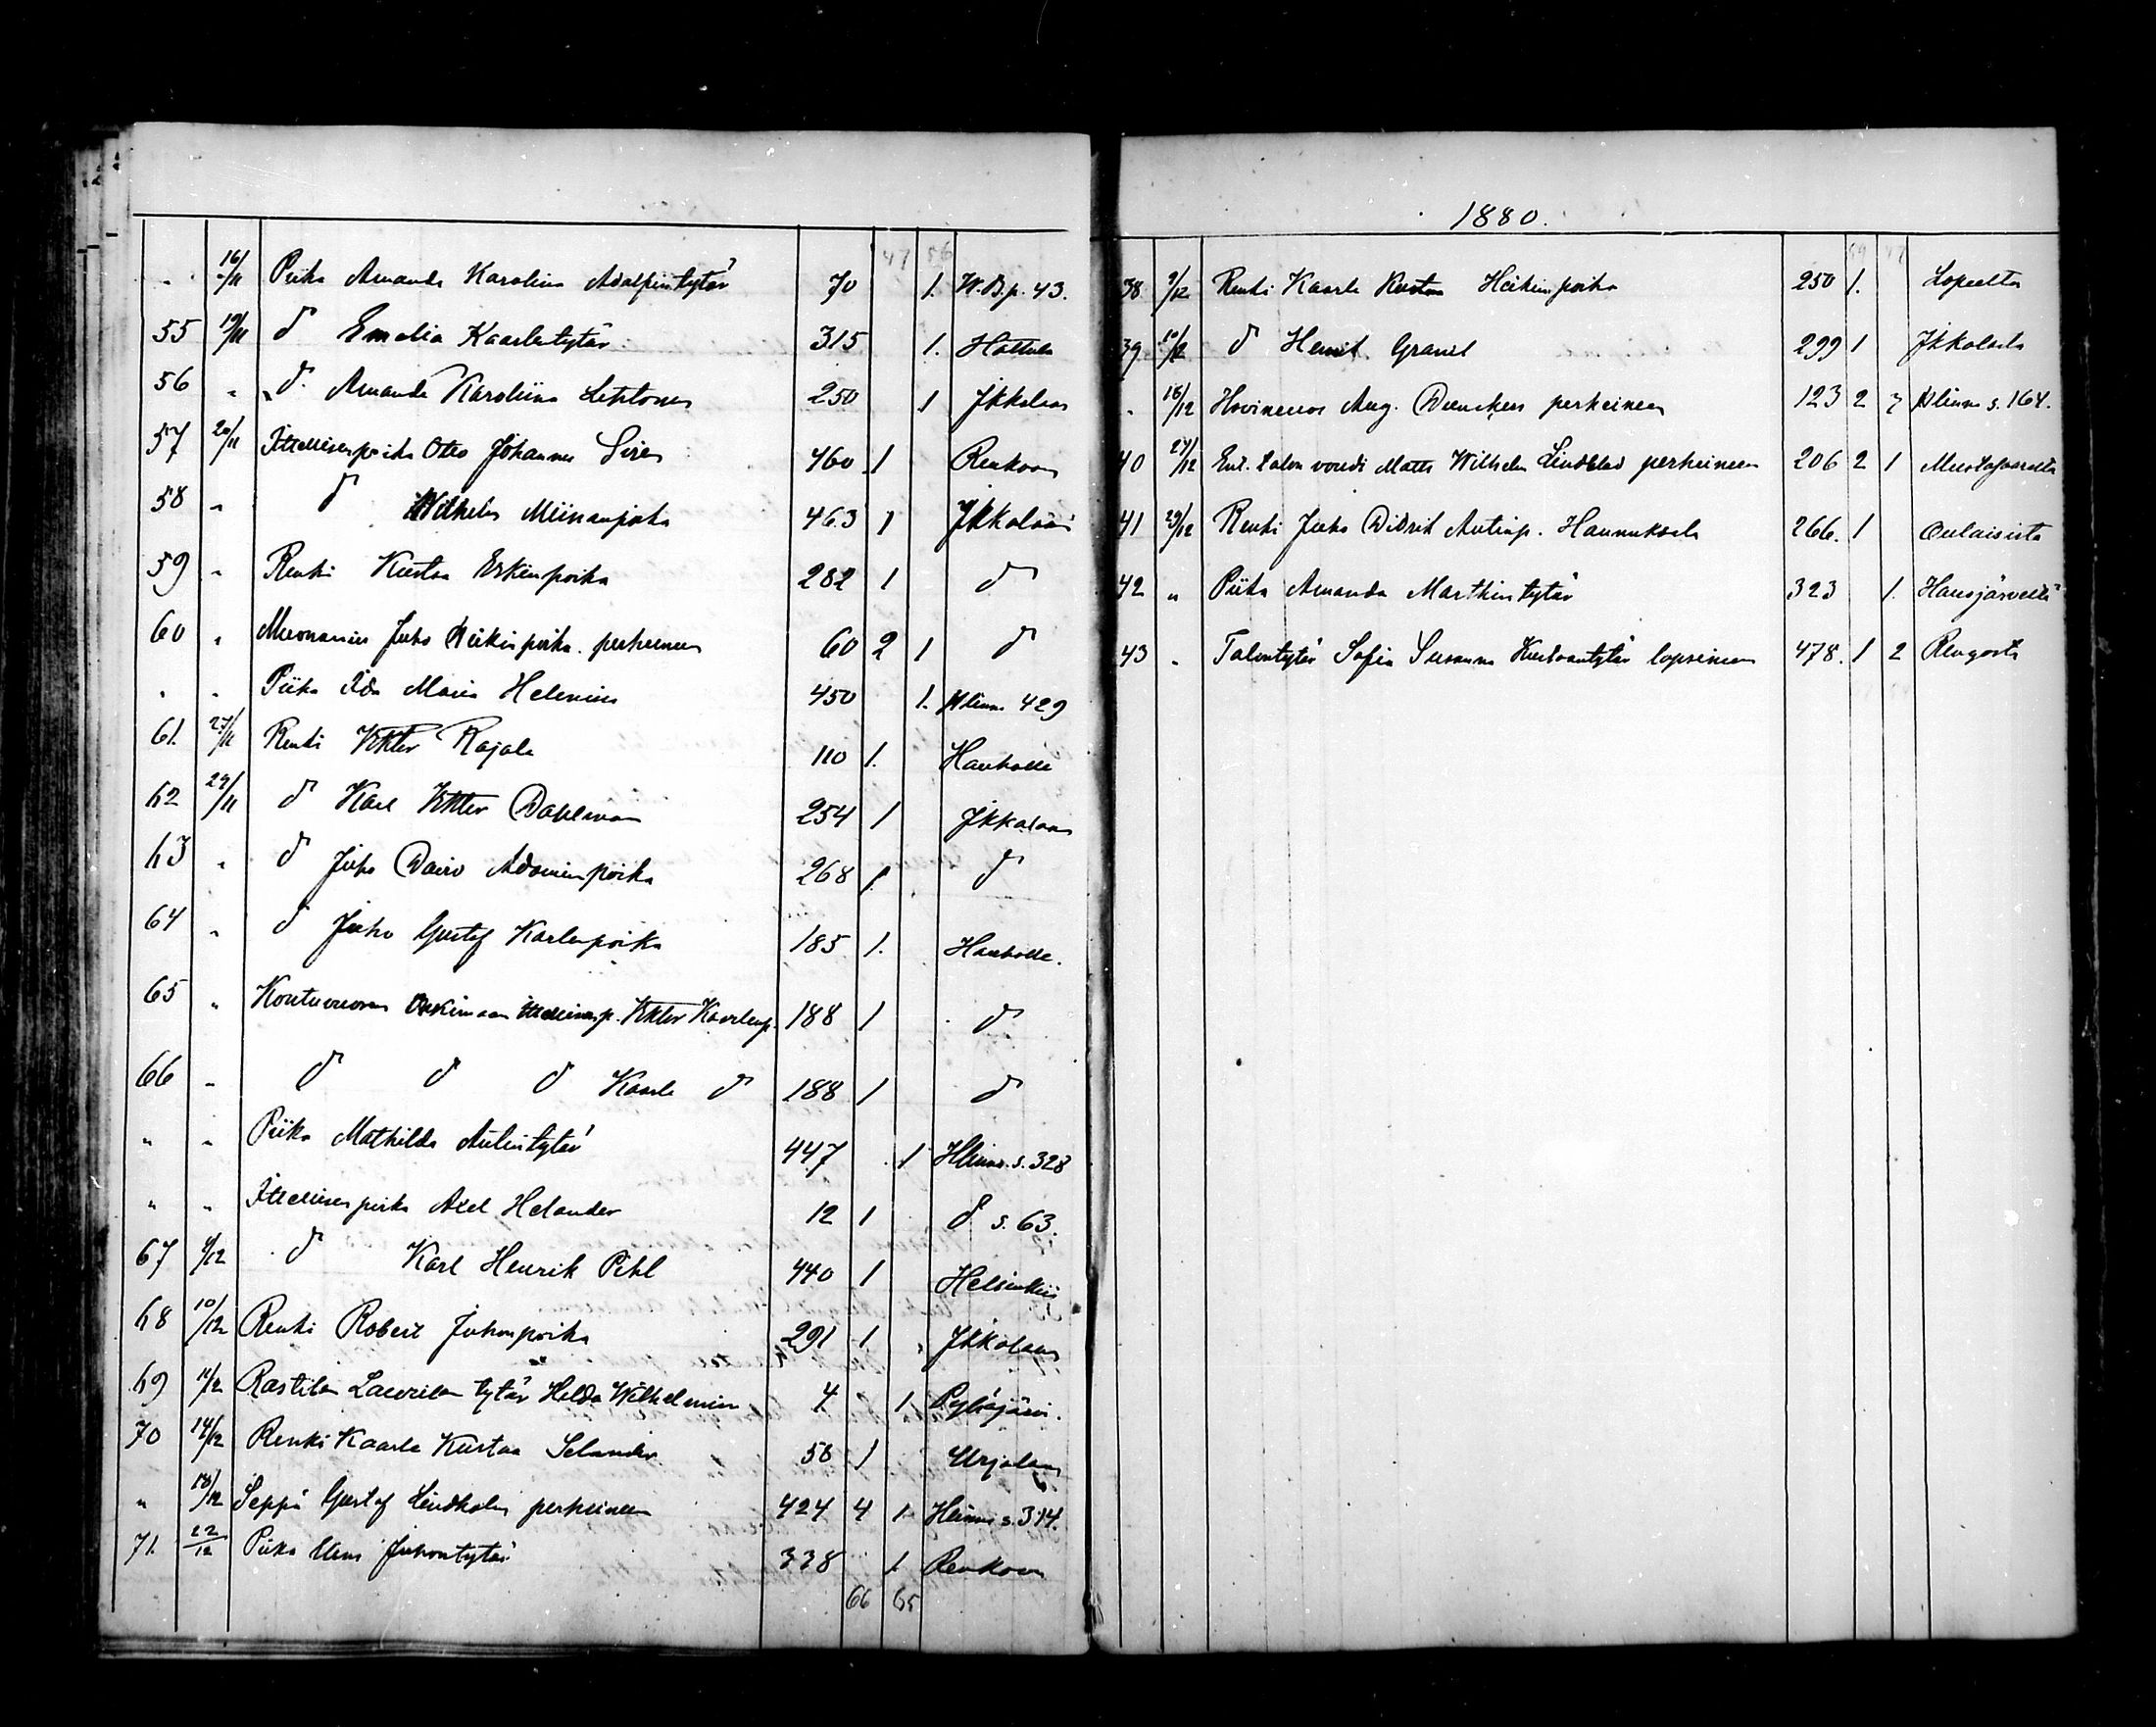 47 56
" 16/11 Piika Amanda Karolina Adolfintytär 70 1. W.B.p. 43.
55 19/11 d Emelia Kaarlentytär 315 1. Hattula
56 " d. Amanda Karoliina Lehtonen 250 1 Jkkalaan
57 20/11 Ittellisenpoika Otto Johannes Siren 460 1 Renkoon
58 " d Wilhelm Miinanpoika 463 1 Jkkalaan
59 " Renki Kustaa Erkinpoika 282 1 d
60 " Muonamies Juho Heikinpoika perheineen 60 2 1 d
" " Piika Ida Maria Helenius 450 1. Hlinna 429
61. 27/11 Renki Vikter Rajala 110 1. Hauholle
62 29/11 d Karl Vikter Dahlman 254 1 Jkkalaan
63 " d Juho David Adaminpoika 268 1 d
64 " d Juho Gustaf Karlenpoika 185 1. Hauholle.
65 " Kontuvuoren Ittellisenp. Vikter Kaarlenp. 188 1 d
66 " d d d Kaarle d 188 1 d
" " Piika Mathilda Antintytär 447 1 Hlinna s. 328
" " Ittellisenpoika Axel Helander 12 1 d s. 63.
67 /12 d Karl Henrik Pihl 440 1 Helsinkiin
68 10/12 Renki Robert Juhonpoika 291 1 Jkkalaan
69 11/12 Rastilan Laurilan tytär Hilda Wilhelmina 4 1 Pyhäjärvi.
70 14/12 Renki Kaarle Kustaa Selander 56 1 Urjalaan
" 18/12 Seppä Gustaf Lindholm perheineen 424 4 1 Hlinna s. 314.
71. 22/12 Piika Juhontytär 338 1 Renkoon
66 65
1880.
38 9/12 Renki Kaarle Kustaa Heikinpoika 250 1. Lopelta
39 10/12 d Henrik Granil 299 1 Jkkalasta
" 18/12 Aug. perheineen 123 2 Hlinna s. 164.
40 27/12 Ent. Talon vouti Matts Wilhelm Lindblad perheineen 206 2 1 Mustasaaresta
41 29/12 Renki Juho Didrik Antinp. Hannuksela 266. 1 Oulaisista
42 " Piika Amanda Marthintytär 323 1. Hausjärveltä
43 " Talontytär Sofia Susanna Kustaantytär lapsineen 478. 1 2 Rengosta